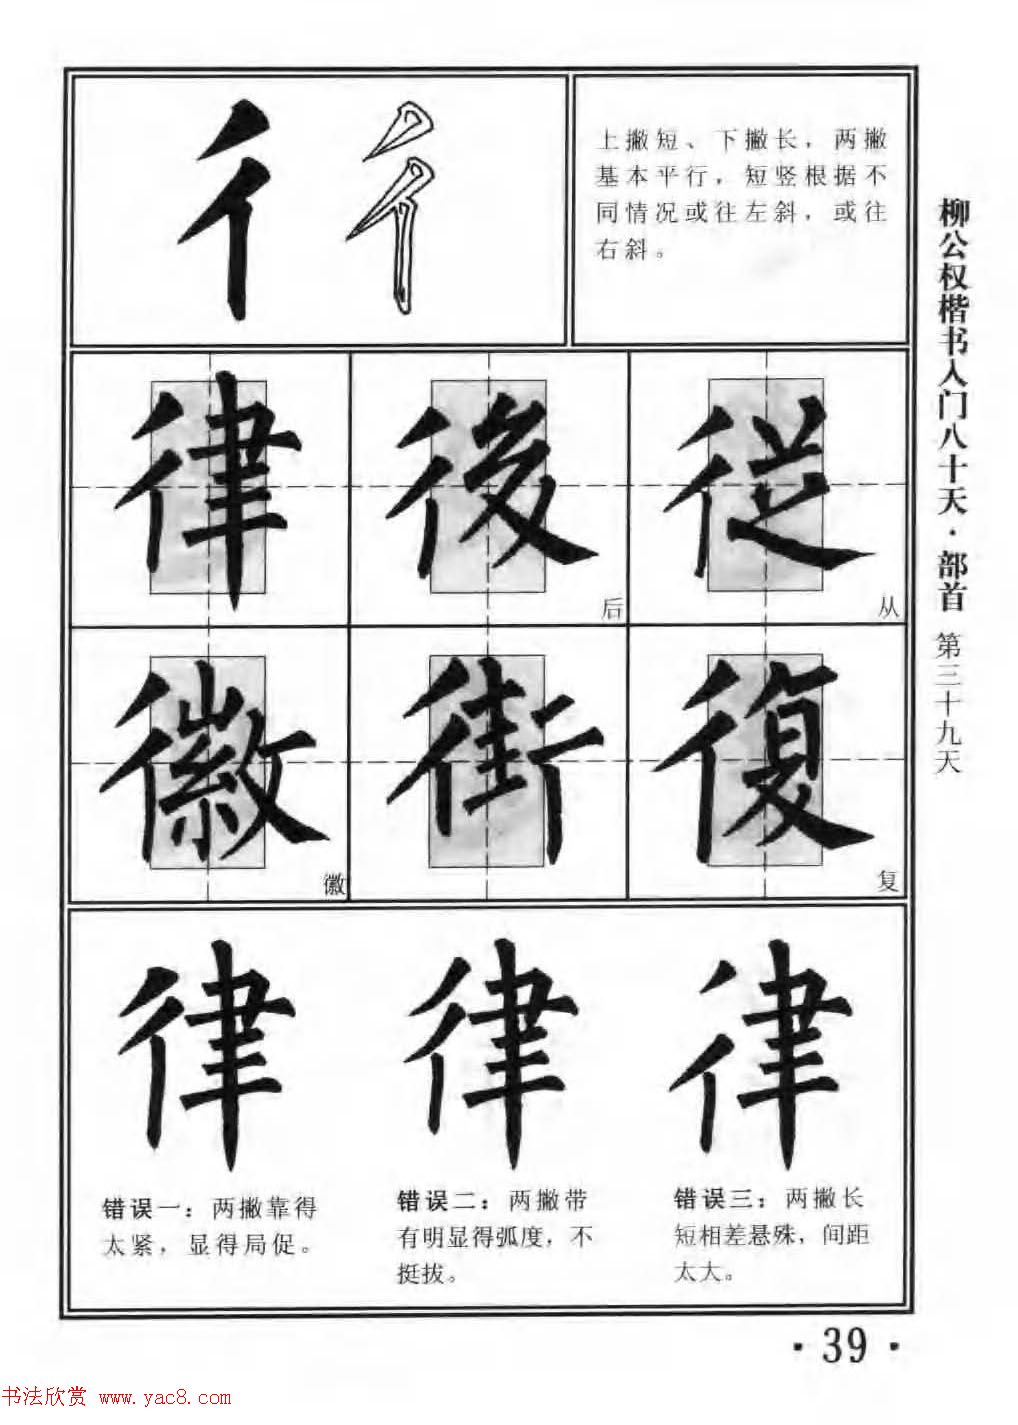 彳 彳
上撇短、下撇长，两撇
基本平行，短竖根据不
同情况或往左斜，或往
右斜。
律 後 從
后 从
徽 街 復
徽 复
律 律 律
错误一：两撇靠得
太紧，显得局促。
错误二：两撇带
有明显得弧度，不
挺拔。
错误三：两撇长
短相差悬殊，间距
太大。
柳公权楷书入门八十天·部首 第三十九天
·39·
书法欣赏 www.yac8.com